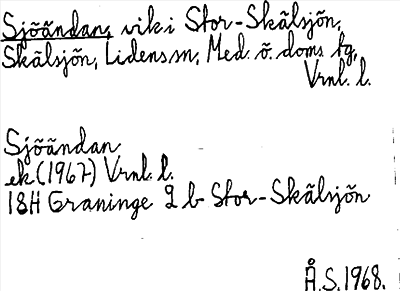 Sjöändan, vik i Stor-Skälsjön,
Skälsjön, Lidens sn, Med. ö. doms tg,
Vrnl. l.
Sjöändan
ek (1967) Vrnl. l.
18H Graninge 2 b Stor-Skälsjön
Å.S. 1968.